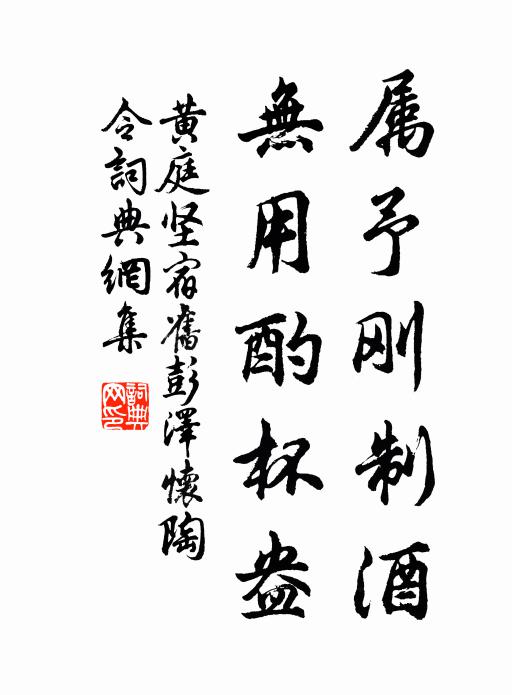 属予刚制酒
無用酌杯盎
黄庭坚宿舊彭澤懷陶
令詞典網集
詞典網印